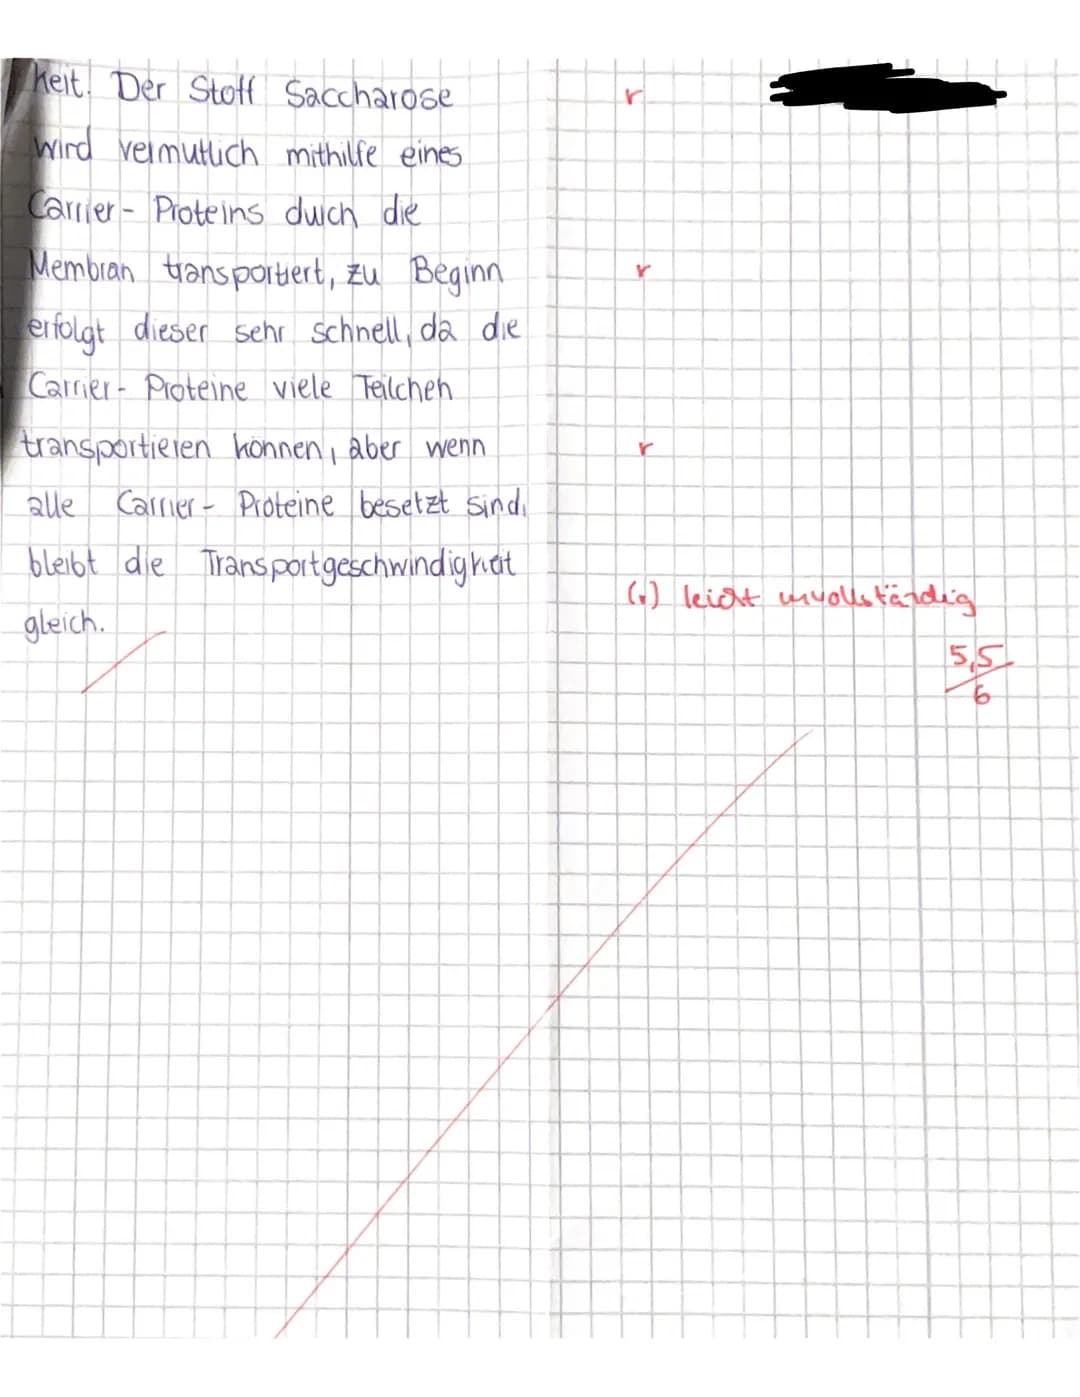 keit. Der Stoff Saccharose
r
wird vermutlich mithilfe eines
Carrier - Proteins durch die
Membran transportiert, zu Beginn
r
erfolgt dieser sehr schnell, da die
Carrier - Proteine viele Teilchen
transportieren können, aber wenn
r
alle Carrier - Proteine besetzt sind,
bleibt die Transportgeschwindigkeit
(r) leicht unvollständig
gleich.
5,5
6